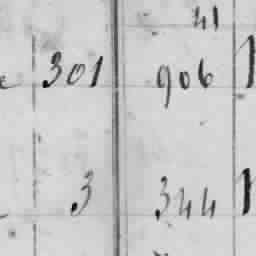 41
301 906
3 344